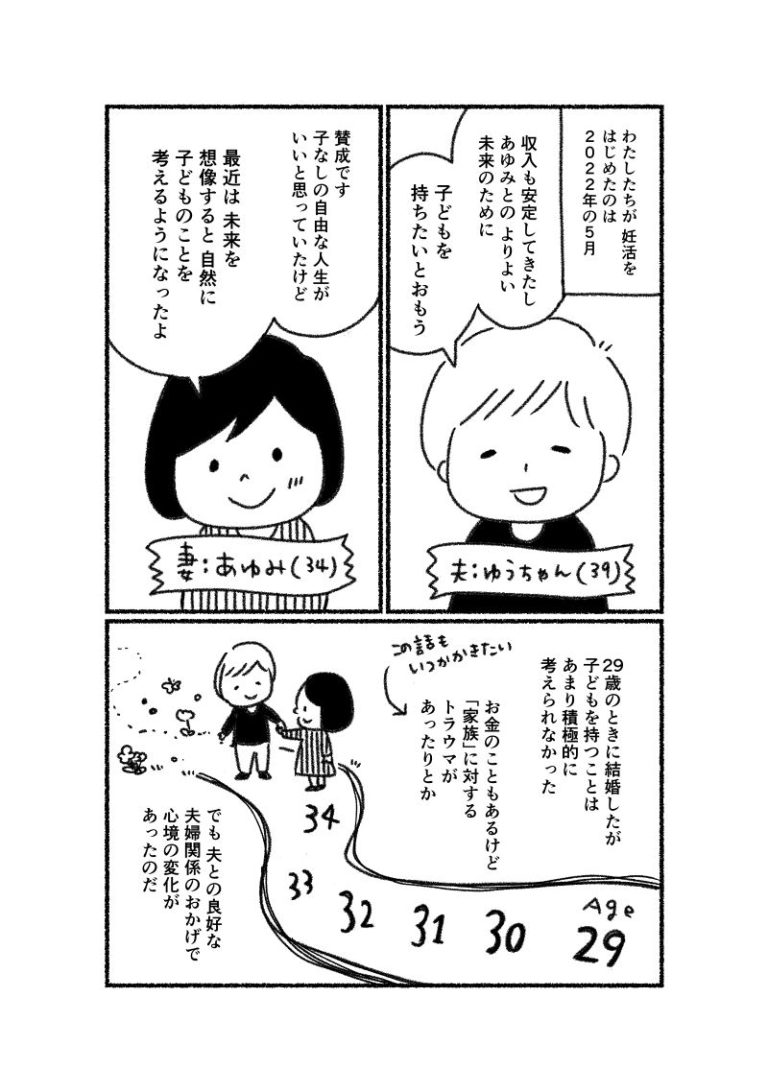 わたしたちが 妊活を
はじめたのは
2022年の5月
収入も安定してきたし
あゆみとの よりよい
未来のために
子どもを
持ちたいとおもう
夫:ゆうちゃん(39)
賛成です
子なしの自由な人生が
いいと思っていたけど
最近は 未来を
想像すると 自然に
子どものことを
考えるようになったよ
妻:あゆみ(34)
29歳のときに結婚したが
子どもを持つことは
あまり積極的に
考えられなかった
この話も
いつかかきたい
お金のこともあるけど
「家族」に対する
トラウマが
あったりとか
Age
29
30
31
32
33
34
でも 夫との良好な
夫婦関係のおかげで
心境の変化が
あったのだ